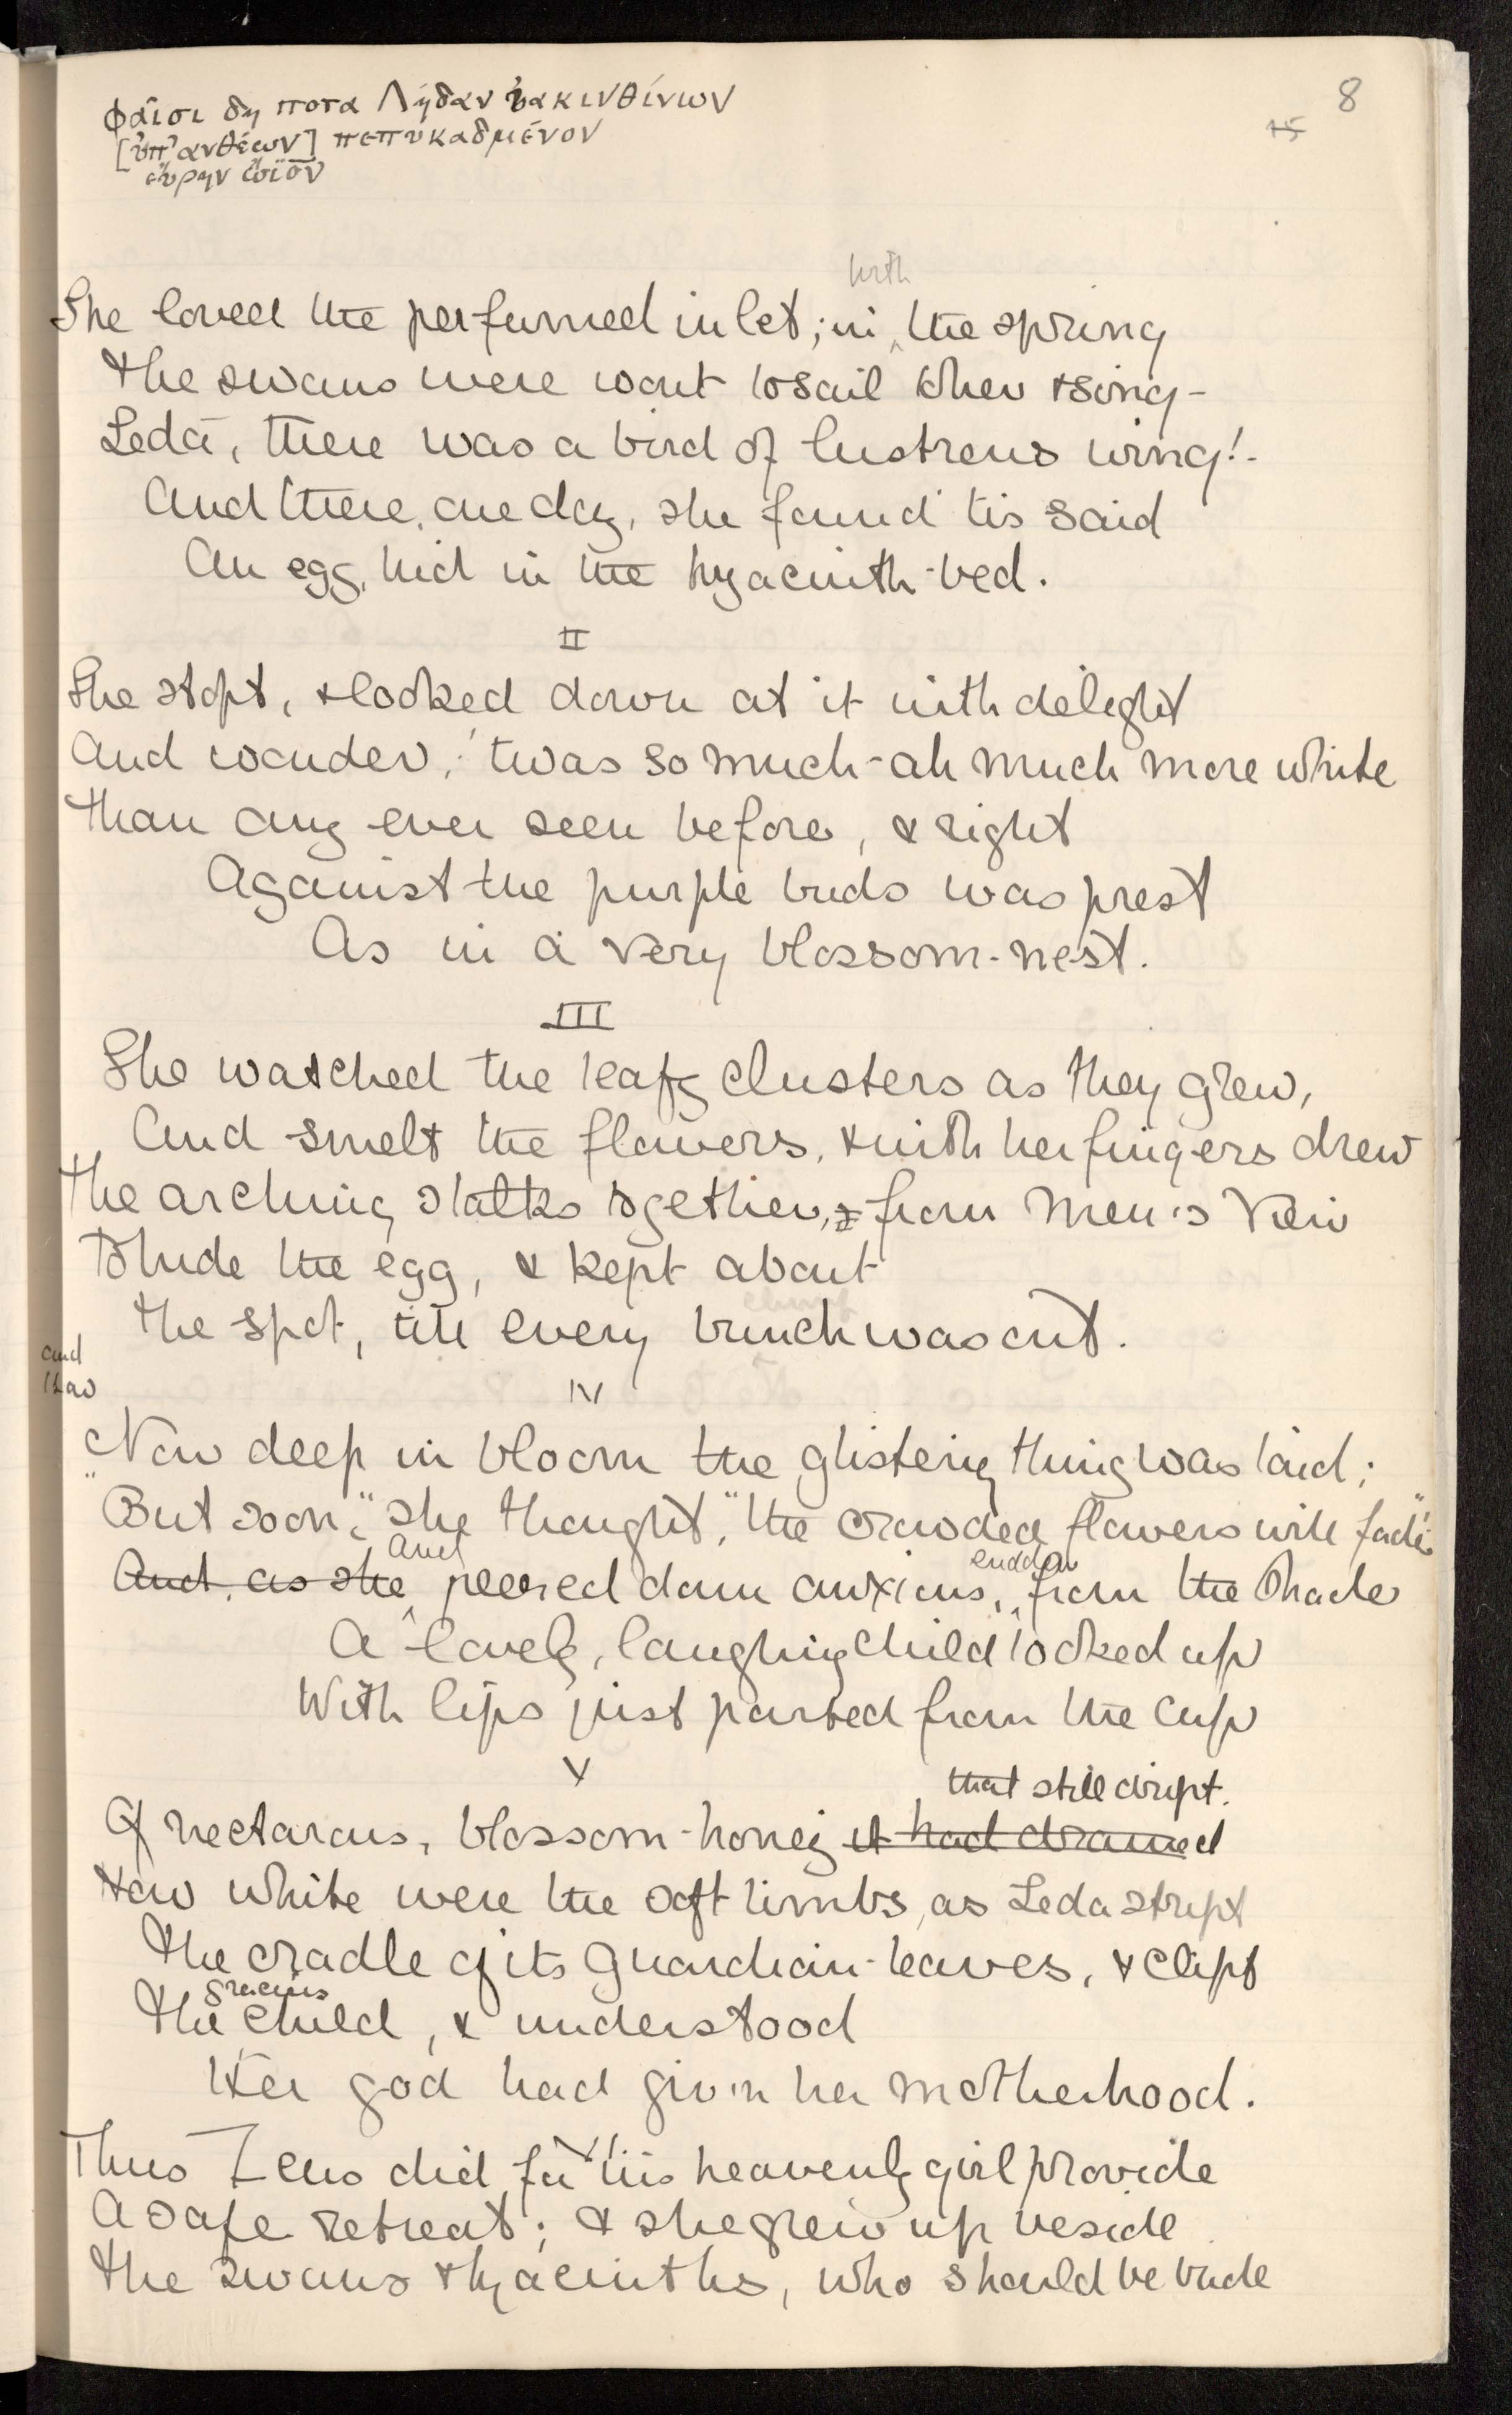 8
15
φαῖσι δη ποτα Λήδαν ὐακινθίνων
[ὐπ' ανθέων] πεπυκαδμένον
εὔρην ὤιον
with
She loved the perfumed inlet; in the spring
The swans were wont to sail there & sing –
Leda, there was a bird of lustrous wing! –
And there, one day, she found tis said
An egg, hid in the hyacinth-bed.
II
She stopt, & looked down at it with delight
And wonder; 'twas so much – ah much more white
Than any ever seen before, & right
Against the purple buds was prest
As in a very blossom-nest.
III
She watched the leafy clusters as they grew,
And smelt the flowers, & with her fingers drew
The arching stalks together, from men's view
To hide the egg, & kept about
The spot, till every bunch was out.
and
IV
Now deep in bloom the glistering thing was laid;
"But soon," she thought, "the crowded flowers will fade"
And
And, as she peered down anxious, from the shade
A lovely, laughing child looked up
With lips just parted from the cup
V
that still dript.
Of nectarous, blossom-honey it had drained
How white were the soft limbs, as Leda stript
The cradle of its guardian-leaves, & clipt
gracious
The child, & understood
Her god had given her motherhood.
VI
Thus Zeus did for his heavenly girl provide
A safe retreat; & she grew up beside
The swans & hyacinths, who should be bride